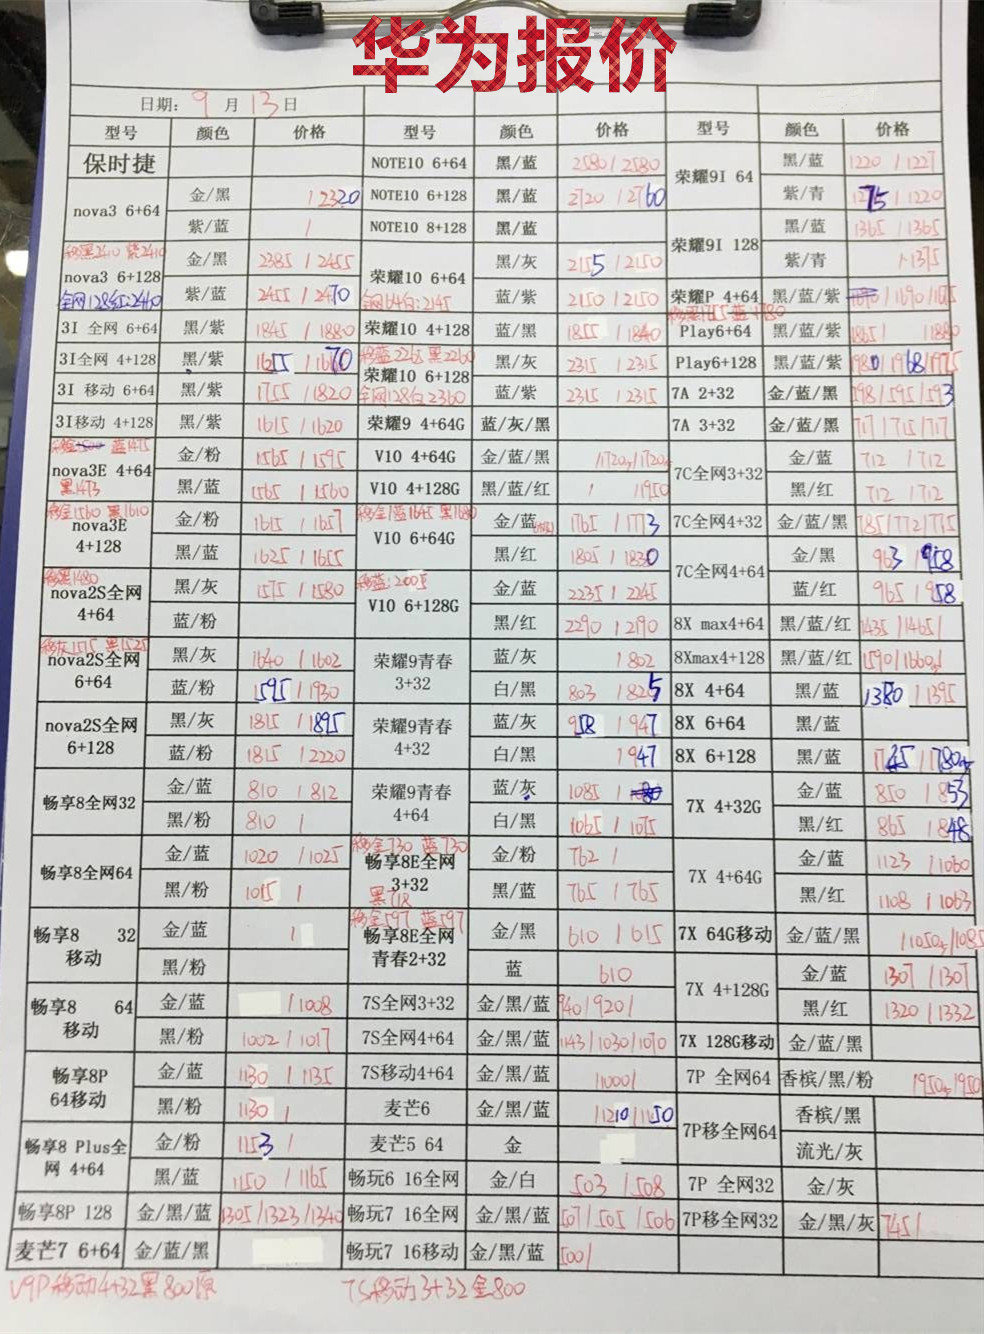 华为报价
日期: 9 月 13 日
型号 颜色 价格 型号 颜色 价格 型号 颜色 价格
保时捷 NOTE10 6+64 黑/蓝 2580 / 2580 荣耀9I 64 黑/蓝 1220 / 1227
nova3 6+64 金/黑 / 2320 NOTE10 6+128 黑/蓝 2720 / 2760 紫/青 1275 / 1220
紫/蓝 / NOTE10 8+128 黑/蓝 荣耀9I 128 黑/蓝 1365 / 1365
移黑2410 紫2410
nova3 6+128 金/黑 2385 / 2455 荣耀10 6+64 黑/灰 2155 / 2150 紫/青 / 1375
全网128红:2440 紫/蓝 2455 / 2470 全网64白:2145 蓝/紫 2150 / 2150 荣耀P 4+64 黑/蓝/紫 / 1690 / 1675
3I 全网 6+64 黑/紫 1845 / 1880 荣耀10 4+128 蓝/黑 1855 / 1840 Play6+64 黑/蓝/紫 1865 / / 1880
3I全网 4+128 黑/紫 1655 / 1670 移蓝2265 黑2260 荣耀10 6+128 黑/灰 2315 / 2315 Play6+128 黑/蓝/紫 1980 / 1968 / 1975
3I 移动 6+64 黑/紫 1755 / 1820 全网128白2360 蓝/紫 2315 / 2315 7A 2+32 金/蓝/黑 598 / 595 / 593
3I移动 4+128 黑/紫 1615 / 1620 荣耀9 4+64G 蓝/灰/黑 7A 3+32 金/蓝/黑 717 / 715 / 717
蓝1475
nova3E 4+64 金/粉 1565 / 1595 V10 4+64G 金/蓝/黑 / 1720 / 1720 7C全网3+32 金/蓝 712 / 712
黑1473 黑/蓝 1565 / 1560 V10 4+128G 黑/蓝/红 / / 1950 黑/红 712 / 712
移金1560 黑1610 移金/蓝1645 黑1680
nova3E 4+128 金/粉 1615 / 1657 V10 6+64G 金/蓝 1765 / 1773 7C全网4+32 金/蓝/黑 785 / 772 / 775
黑/蓝 1625 / 1655 黑/红 1805 / 1830 7C全网4+64 金/黑 963 / 958
移黑1480 移蓝:2005
nova2S全网 4+64 黑/灰 1575 / 1580 V10 6+128G 金/蓝 2235 / 2245 蓝/红 965 / 958
蓝/粉 黑/红 2290 / 2190 8X max4+64 黑/蓝/红 1435 / 1465 /
移灰1515 黑1525
nova2S全网 6+64 黑/灰 1640 / 1602 荣耀9青春 3+32 蓝/灰 / 802 8Xmax4+128 黑/蓝/红 1590 / 1660 /
蓝/粉 1595 / 1930 白/黑 803 / 825 8X 4+64 黑/蓝 1380 / 1395
nova2S全网 6+128 黑/灰 1815 / 1895 荣耀9青春 4+32 蓝/灰 958 / 947 8X 6+64 黑/蓝
蓝/粉 1815 / 2220 白/黑 / 947 8X 6+128 黑/蓝 1745 / 1780
畅享8全网32 金/蓝 810 / 812 荣耀9青春 4+64 蓝/灰 1085 / 7X 4+32G 金/蓝 850 / 853
黑/粉 810 / 白/黑 1065 / 1075 黑/红 865 / 848
移金730 蓝730
畅享8全网64 金/蓝 1020 / 1025 畅享8E全网 3+32 金/粉 762 / 7X 4+64G 金/蓝 1123 / 1060
黑/粉 1015 / 黑718 黑/蓝 765 / 765 黑/红 1108 / 1063
移金597 蓝597
畅享8 32 移动 金/蓝 / 畅享8E全网 青春2+32 金/黑 610 / 615 7X 64G移动 金/蓝/黑 / 1050 / 1085
黑/粉 蓝 610 7X 4+128G 金/蓝 1307 / 1307
畅享8 64 移动 金/蓝 / 1008 7S全网3+32 金/黑/蓝 940 / 920 / 黑/红 1320 / 1332
黑/粉 1002 / 1017 7S全网4+64 金/黑/蓝 1143 / 1030 / 1070 7X 128G移动 金/蓝/黑
畅享8P 64移动 金/蓝 1130 / 1135 7S移动4+64 金/黑/蓝 / 1000 / 7P 全网64 香槟/黑/粉 1950 / 1950
黑/粉 1130 / 麦芒6 金/黑/蓝 / 1210 / 1150 7P移全网64 香槟/黑
畅享8 Plus全网 4+64 金/粉 1153 / 麦芒5 64 金 流光/灰
黑/蓝 1150 / 1165 畅玩6 16全网 金/白 503 / 508 7P 全网32 金/灰
畅享8P 128 金/黑/蓝 1305 / 1323 / 1340 畅玩7 16全网 金/黑/蓝 507 / 505 / 506 7P移全网32 金/黑/灰 745 /
麦芒7 6+64 金/蓝/黑 畅玩7 16移动 金/黑/蓝 500 /
V9P移动4+32黑800原 7S移动3+32金800